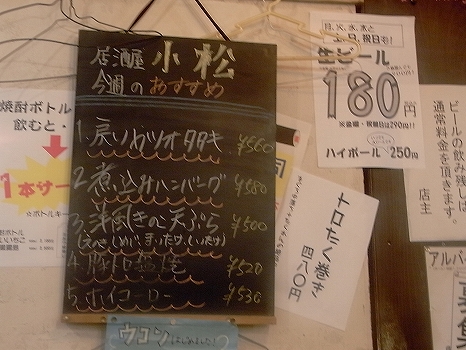 居酒屋 小松
今週のおすすめ
1. 戻りカツオタタキ ¥560
2. 煮込みハンバーグ ¥580
3. 洋風きのこ天ぷら ¥500
4. 豚トロ塩焼 ¥520
5. ホイコーロー ¥530
ウコン はじめました!
焼酎ボトル
飲むと・
1本サー
☆ボトルキー
月、火、水、木と
土、日、祝日も!
生ビール
180円
※金曜・祝前日は290円!!
ハイボール 250円
トロたく巻き
四八〇円
ビールの飲み残しは
通常料金を頂きます。
店主
アルバ